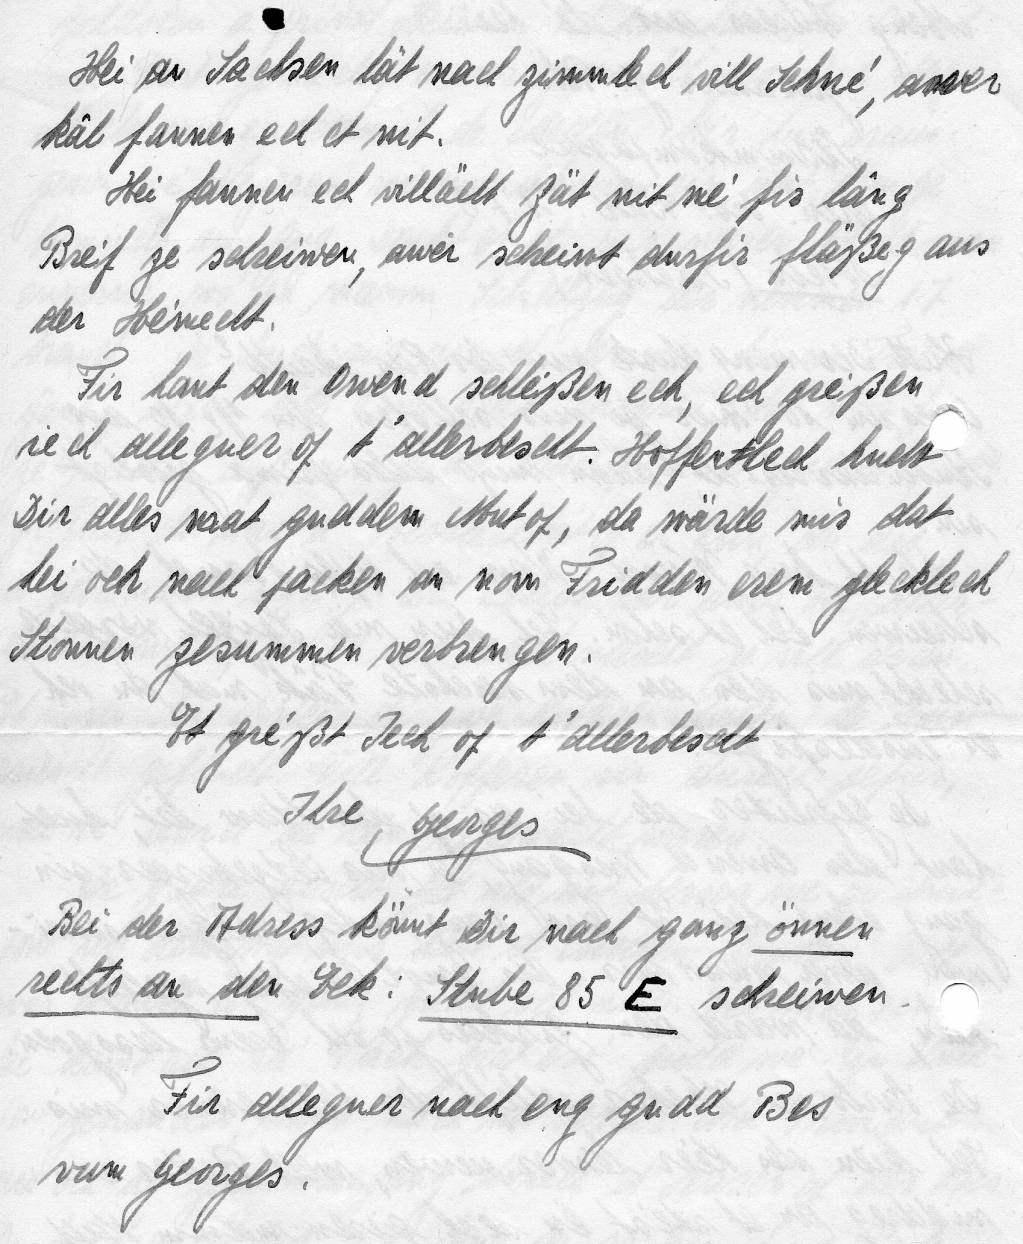 Hei an Sachsen lät nach zimmlech vill Schné, awer
kâl fannen ech et nit.
Hei fannen ech villäicht Zät nit mé fir lâng
Breif ze schreiwen, awer schreiwt durfir fläßeg aus
der Hémecht.
Fir haut den Owend schleißen ech, ech greißen
iech alleguer of t'allerbescht. Hoffentlech huelt
Dir alles mat guddem Mut of, da wärde mir dat
hei och nach packen an nom Fridden erem glecklech
Stonnen zesummen verbrengen.
Et gréßt Iech of t'allerbescht
Ihre Georges
Bei der Adress könnt Dir nach ganz önnen
rechts an den Eck: Stube 85 E schreiwen.
Fir alleguer nach eng gudd Bes
vum Georges.